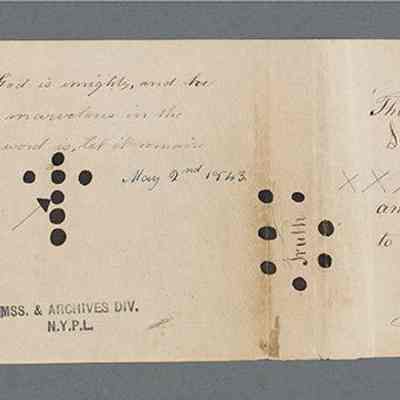 God is mighty, and he
marvelous in the
word is, let it remain
May 2nd 1843.
Truth
Th
XXX
an
to
MSS. & ARCHIVES DIV.
N.Y.P.L.